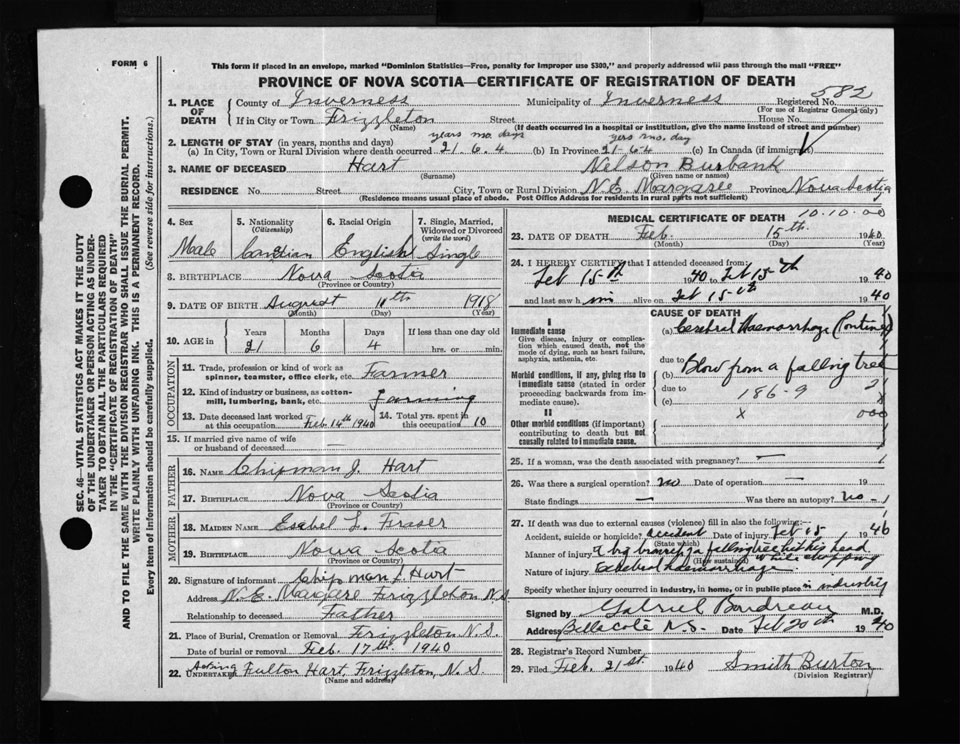 FORM 6
This form if placed in an envelope, marked "Dominion Statistics—Free, penalty for improper use $300," and properly addressed will pass through the mail "FREE"
PROVINCE OF NOVA SCOTIA—CERTIFICATE OF REGISTRATION OF DEATH
582
1. PLACE OF DEATH County of Inverness Municipality of Inverness Registered No.
(For use of Registrar General only)
If in City or Town Frizzleton Street House No.
(Name) (If death occurred in a hospital or institution, give the name instead of street and number)
2. LENGTH OF STAY (in years, months and days) years mo. days yers mo. day
(a) In City, Town or Rural Division where death occurred 21. 6. 4 (b) In Province 21-6-4 (c) In Canada (if immigrant)
3. NAME OF DECEASED Hart Nelson Burbank
(Surname) (Given name or names)
RESIDENCE No. Street City, Town or Rural Division N.E. Margaree Province Nova Scotia
(Residence means usual place of abode. Post Office Address for residents in rural parts not sufficient)
4. Sex 5. Nationality (Citizenship) 6. Racial Origin 7. Single, Married, Widowed or Divorced (write the word)
Male Canadian English Single
8. BIRTHPLACE Nova Scotia
(Province or Country)
9. DATE OF BIRTH August 11th 1918
(Month) (Day) (Year)
10. AGE in Years Months Days If less than one day old
21 6 4 hrs. or min.
OCCUPATION
11. Trade, profession or kind of work as spinner, teamster, office clerk, etc. Farmer
12. Kind of industry or business, as cotton-mill, lumbering, bank, etc. farming
13. Date deceased last worked at this occupation Feb. 14th 1940 14. Total yrs. spent in this occupation 10
15. If married give name of wife or husband of deceased
FATHER
16. NAME Chipman J. Hart
17. BIRTHPLACE Nova Scotia
(Province or Country)
MOTHER
18. MAIDEN NAME Esabel L. Fraser
19. BIRTHPLACE Nova Scotia
(Province or Country)
20. Signature of informant Chipman J. Hart
Address N.E. Margare Frizzleton N.S
Relationship to deceased Father
21. Place of Burial, Cremation or Removal Frizzleton N.S.
Date of burial or removal Feb. 17th 1940
22. Acting UNDERTAKER Fulton Hart, Frizzleton, N.S.
(Name and address)
MEDICAL CERTIFICATE OF DEATH 10-10-00
23. DATE OF DEATH Feb. 15th 1940
(Month) (Day) (Year)
24. I HEREBY CERTIFY that I attended deceased from:
Feb 15th 1940 to Feb 15th 1940
and last saw him alive on Feb 15th 1940
CAUSE OF DEATH
I
Immediate cause
Give disease, injury or complication which caused death, not the mode of dying, such as heart failure, asphyxia, asthenia, etc.
(a) Cerebral Haemorrhage (Pontine)
due to
Morbid conditions, if any, giving rise to immediate cause (stated in order proceeding backwards from immediate cause).
(b) Blow from a falling tree
due to 186-9 2
(c) X
II
Other morbid conditions (if important) contributing to death but not causally related to immediate cause.
x 000
25. If a woman, was the death associated with pregnancy? —
26. Was there a surgical operation? no Date of operation —
State findings — Was there an autopsy? no
27. If death was due to external causes (violence) fill in also the following:—
Accident, suicide or homicide? accident Date of injury Feb 15 1940
(State which)
Manner of injury A big branch of a falling tree hit his head while chopping
(How sustained)
Nature of injury Cerebral haemorrhage.
Specify whether injury occurred in industry, in home, or in public place in industry
Signed by Gabriel Boudreau M.D.
Address Belle Cote N.S. Date Feb 20th 1940
28. Registrar's Record Number
29. Filed Feb. 21st. 1940 Smith Burton
(Division Registrar)
SEC. 46—VITAL STATISTICS ACT MAKES IT THE DUTY
OF THE UNDERTAKER OR PERSON ACTING AS UNDER-
TAKER TO OBTAIN ALL THE PARTICULARS REQUIRED
IN THE "CERTIFICATE OF REGISTRATION OF DEATH"
AND TO FILE THE SAME WITH THE DIVISION REGISTRAR WHO SHALL ISSUE THE BURIAL PERMIT.
WRITE PLAINLY WITH UNFADING INK. THIS IS A PERMANENT RECORD.
Every item of information should be carefully supplied. (See reverse side for instructions.)